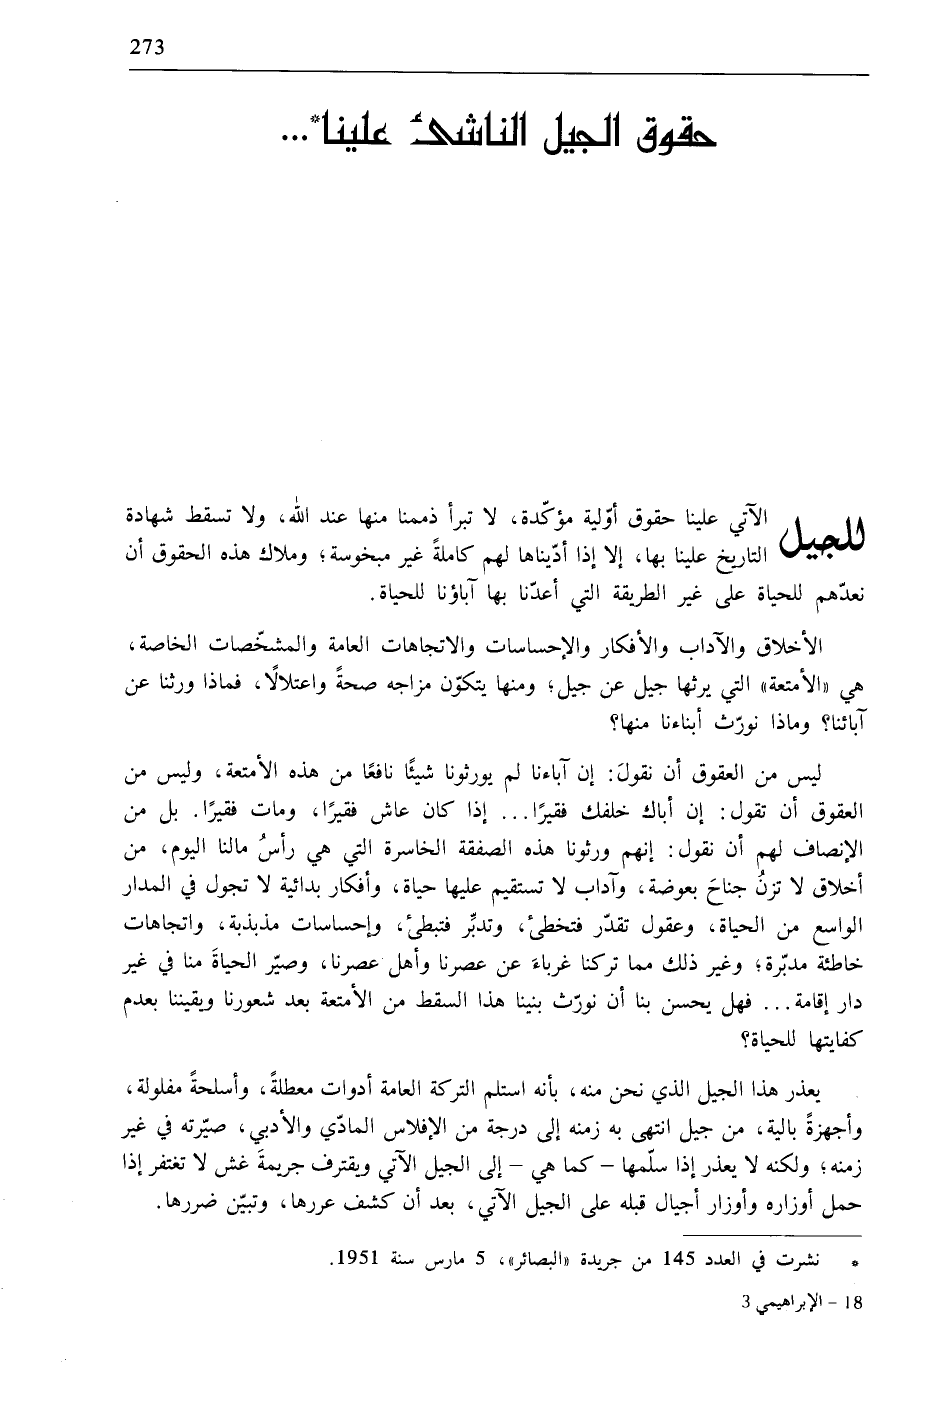 273
حقوق الجيل الناشئ علينا*...
للجيل الآتي علينا حقوق أوّلية مؤكّدة، لا تبرأ ذممنا منها عند الله، ولا تسقط شهادة
التاريخ علينا بها، إلا إذا أدّيناها لهم كاملةً غير مبخوسة؛ وملاك هذه الحقوق أن
نعدّهم للحياة على غير الطريقة التي أعدّنا بها آباؤنا للحياة.
الأخلاق والآداب والأفكار والإحساسات والاتجاهات العامة والمشخّصات الخاصة،
هي «الأمتعة» التي يرثها جيل عن جيل؛ ومنها يتكوّن مزاجه صحةً واعتلالًا، فماذا ورثنا عن
آبائنا؟ وماذا نورّث أبناءنا منها؟
ليس من العقوق أن نقولَ: إن آباءنا لم يورثونا شيئًا نافعًا من هذه الأمتعة، وليس من
العقوق أن تقول: إن أباك خلفك فقيرًا... إذا كان عاش فقيرًا، ومات فقيرًا. بل من
الإنصاف لهم أن نقول: إنهم ورثونا هذه الصفقة الخاسرة التي هي رأسُ مالنا اليوم، من
أخلاق لا تزنُ جناحَ بعوضة، وآداب لا تستقيم عليها حياة، وأفكار بدائية لا تجول في المدار
الواسع من الحياة، وعقول تقدّر فتخطئ، وتدبِّر فتبطئ، وإحساسات مذبذبة، واتجاهات
خاطئة مدبّرة؛ وغير ذلك مما تركنا غرباءَ عن عصرنا وأهل عصرنا، وصيّر الحياةَ منا في غير
دار إقامة... فهل يحسن بنا أن نورّث بنينا هذا السقط من الأمتعة بعد شعورنا ويقيننا بعدم
كفايتها للحياة؟
يعذر هذا الجيل الذي نحن منه، بأنه استلم التركة العامة أدوات معطلةً، وأسلحةً مفلولة،
وأجهزةً بالية، من جيل انتهى به زمنه إلى درجة من الإفلاس المادّي والأدبي، صيّرته في غير
زمنه؛ ولكنه لا يعذر إذا سلّمها - كما هي - إلى الجيل الآتي ويقترف جريمةَ غش لا تغتفر إذا
حمل أوزاره وأوزار أجيال قبله على الجيل الآتي، بعد أن كشف عررها، وتبيّن ضررها.
* نشرت في العدد 145 من جريدة «البصائر»، 5 مارس سنة 1951.
18 - الإبراهيمي 3